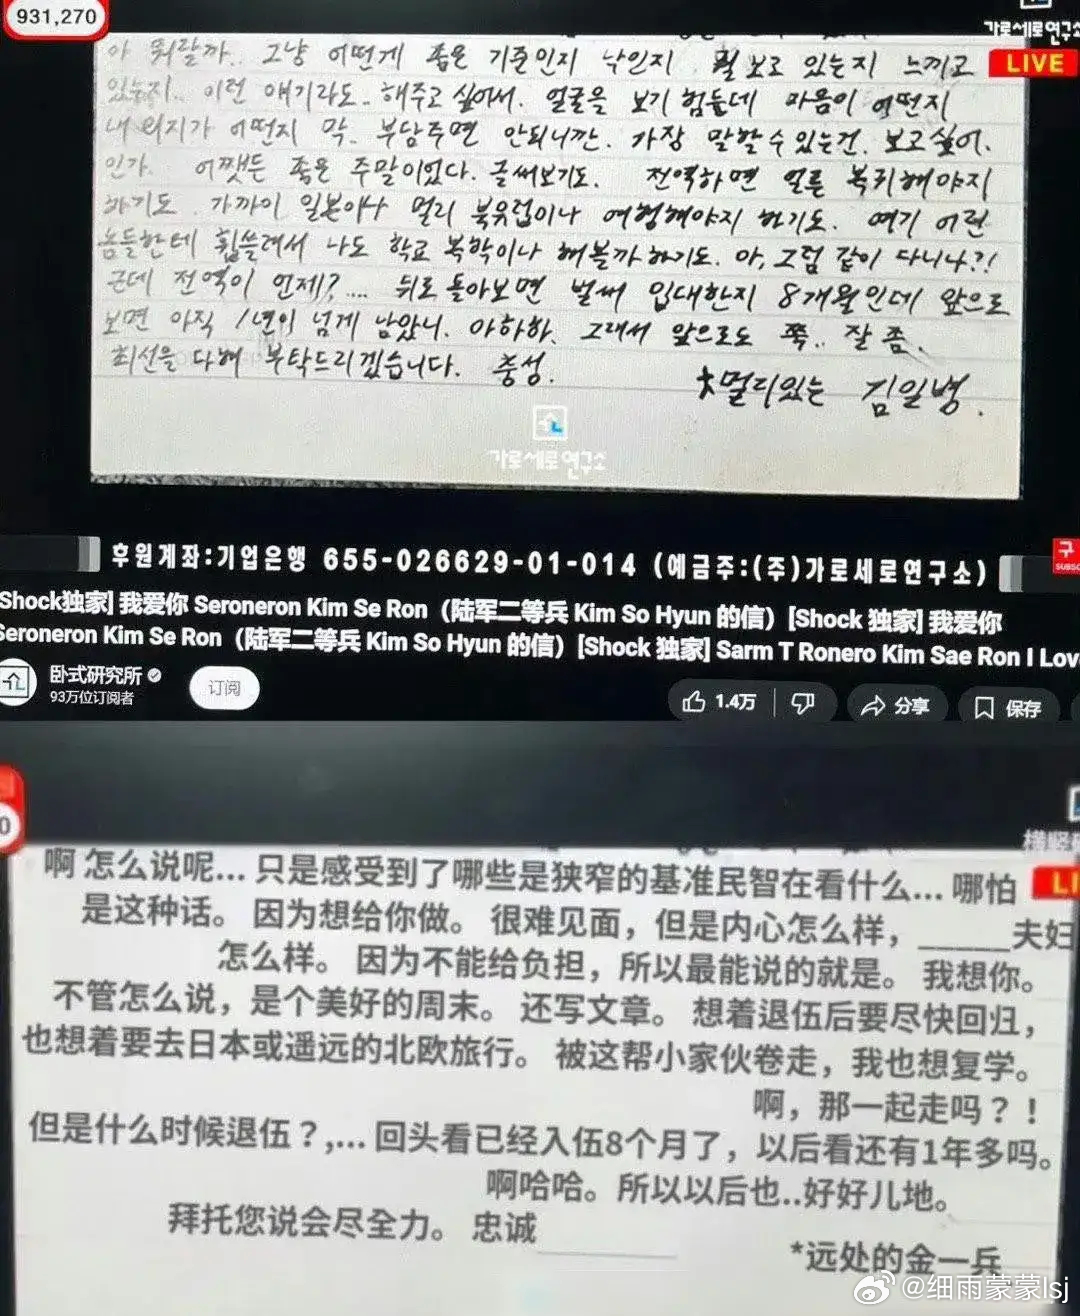 931,270
가로세로연구소
LIVE
아 뭐랄까.. 그냥 어떻게 좁은 기준인지 낙인지 뭘 보고 있는지 느끼고
있는지.. 이런 얘기라도.. 해주고 싶어서. 얼굴을 보기 힘들데 마음이 어떤지
내 의지가 어떤지 막.. 부담주면 안되니깐. 가장 말할 수 있는건. 보고싶어.
인가. 어쨋든 좋은 주말이었다. 글써보기도. 전역하면 얼른 복귀해야지
하기도. 가까이 일본이나 멀리 북유럽이나 여행해야지 하기도. 여기 어린
놈들한테 휩쓸려서 나도 학교 복학이나 해볼까 하기도. 아, 그럼 같이 다니나?!
근데 전역이 언제?.... 뒤로 돌아보면 벌써 입대한지 8개월인데 앞으로
보면 아직 1년이 넘게 남았니. 아하하. 그래서 앞으로도 쭉.. 잘 좀.
최선을 다해 부탁드리겠습니다. 충성.
*멀리있는 김일병.
가로세로연구소
후원계좌:기업은행 655-026629-01-014 (예금주:(주)가로세로연구소)
구
SUBSC
Shock独家] 我爱你 Seroneron Kim Se Ron（陆军二等兵 Kim So Hyun 的信）[Shock 独家] 我爱你
Seroneron Kim Se Ron（陆军二等兵 Kim So Hyun 的信）[Shock 独家] Sarm T Ronero Kim Sae Ron I Lov
卧式研究所
93万位订阅者
订阅
1.4万
分享
保存
0
横竖
LI
啊 怎么说呢... 只是感受到了哪些是狭窄的基准民智在看什么... 哪怕
是这种话。 因为想给你做。 很难见面，但是内心怎么样，_____夫妇
怎么样。 因为不能给负担，所以最能说的就是。 我想你。
不管怎么说，是个美好的周末。 还写文章。 想着退伍后要尽快回归，
也想着要去日本或遥远的北欧旅行。 被这帮小家伙卷走，我也想复学。
啊，那一起走吗？！
但是什么时候退伍？,... 回头看已经入伍8个月了，以后看还有1年多吗。
啊哈哈。所以以后也..好好儿地。
拜托您说会尽全力。 忠诚________
*远处的金一兵
@细雨蒙蒙lsj